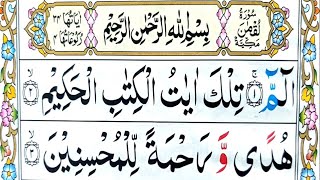 سُوْرَةُ لُقْمٰنَ مَكِّيَّةٌ
بِسْمِ اللّٰهِ الرَّحْمٰنِ الرَّحِيْمِ
اٰيَاتُهَا ٣٤
رُكُوْعَاتُهَا ٤
الٓمّٓ ۚ﴿١﴾ تِلْكَ اٰيٰتُ الْكِتٰبِ الْحَكِيْمِ ۙ﴿٢﴾
هُدًى وَّ رَحْمَةً لِّلْمُحْسِنِيْنَ ۙ﴿٣﴾